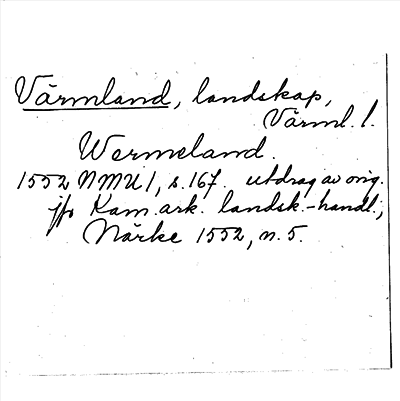 Värmland, landskap,
Värml. l.
Wermeland.
1552 NMU 1, s. 167. utdrag av orig.
jfr Kam. ark. landsk.-handl.,
Närke 1552, n. 5.